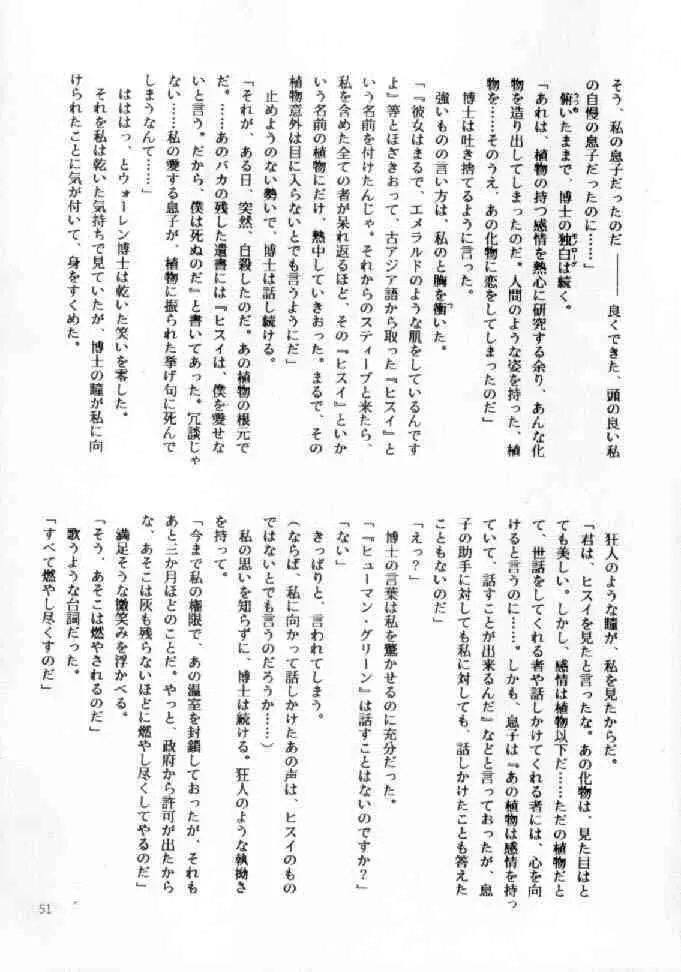 そう、私の息子だったのだ――――良くできた、頭の良い私
の自慢の息子だったのに……」
俯いたままで、博士の独白は続く。
「あれは、植物の持つ感情を熱心に研究する余り、あんな化
物を造り出してしまったのだ。人間のような姿を持った、植
物を……そのうえ、あの化物に恋をしてしまったのだ」
博士は吐き捨てるように言った。
強いものの言い方は、私のと胸を衝いた。
「『彼女はまるで、エメラルドのような肌をしているんです
よ』等とほさきおって、古アジア語から取った『ヒスイ』と
いう名前を付けたんじゃ。それからのスティーブと来たら、
私を含めた全ての者が呆れ返るほど、その『ヒスイ』といか
いう名前の植物にだけ、熱中していきおった。まるで、その
植物意外は目に入らないとでも言うようにだ」
止めようのない勢いで、博士は話し続ける。
「それが、ある日、突然、自殺したのだ。あの植物の根元で
だ。……あのバカの残した遺書には『ヒスイは、僕を愛せな
いと言う。だから、僕は死ぬのだ』と書いてあった。冗談じゃ
ない……私の愛する息子が、植物に振られた挙げ句に死んで
しまうなんて……」
はははっ、とウォーレン博士は乾いた笑いを零した。
それを私は乾いた気持ちで見ていたが、博士の瞳が私に向
けられたことに気が付いて、身をすくめた。
狂人のような瞳が、私を見たからだ。
「君は、ヒスイを見たと言ったな。あの化物は、見た目はと
ても美しい。しかし、感情は植物以下だ……ただの植物だと
て、世話をしてくれる者や話しかけてくれる者には、心を向
けると言うのに……。しかも、息子は『あの植物は感情を持っ
ていて、話すことが出来るんだ』などと言っておったが、息
子の助手に対しても私に対しても、話しかけたことも答えた
こともないのだ」
「えっ？」
博士の言葉は私を驚かせるのに充分だった。
「『ヒューマン・グリーン』は話すことはないのですか？」
「ない」
きっぱりと、言われてしまう。
（ならば、私に向かって話しかけたあの声は、ヒスイのもの
ではないとでも言うのだろうか……）
私の思いを知らずに、博士は続ける。狂人のような執拗さ
を持って。
「今まで私の権限で、あの温室を封鎖しておったが、それも
あと三か月ほどのことだ。やっと、政府から許可が出たから
な、あそこは灰も残らないほどに燃やし尽くしてやるのだ」
満足そうな微笑みを浮かべる。
「そう、あそこは燃やされるのだ」
歌うような台詞だった。
「すべて燃やし尽くすのだ」
51